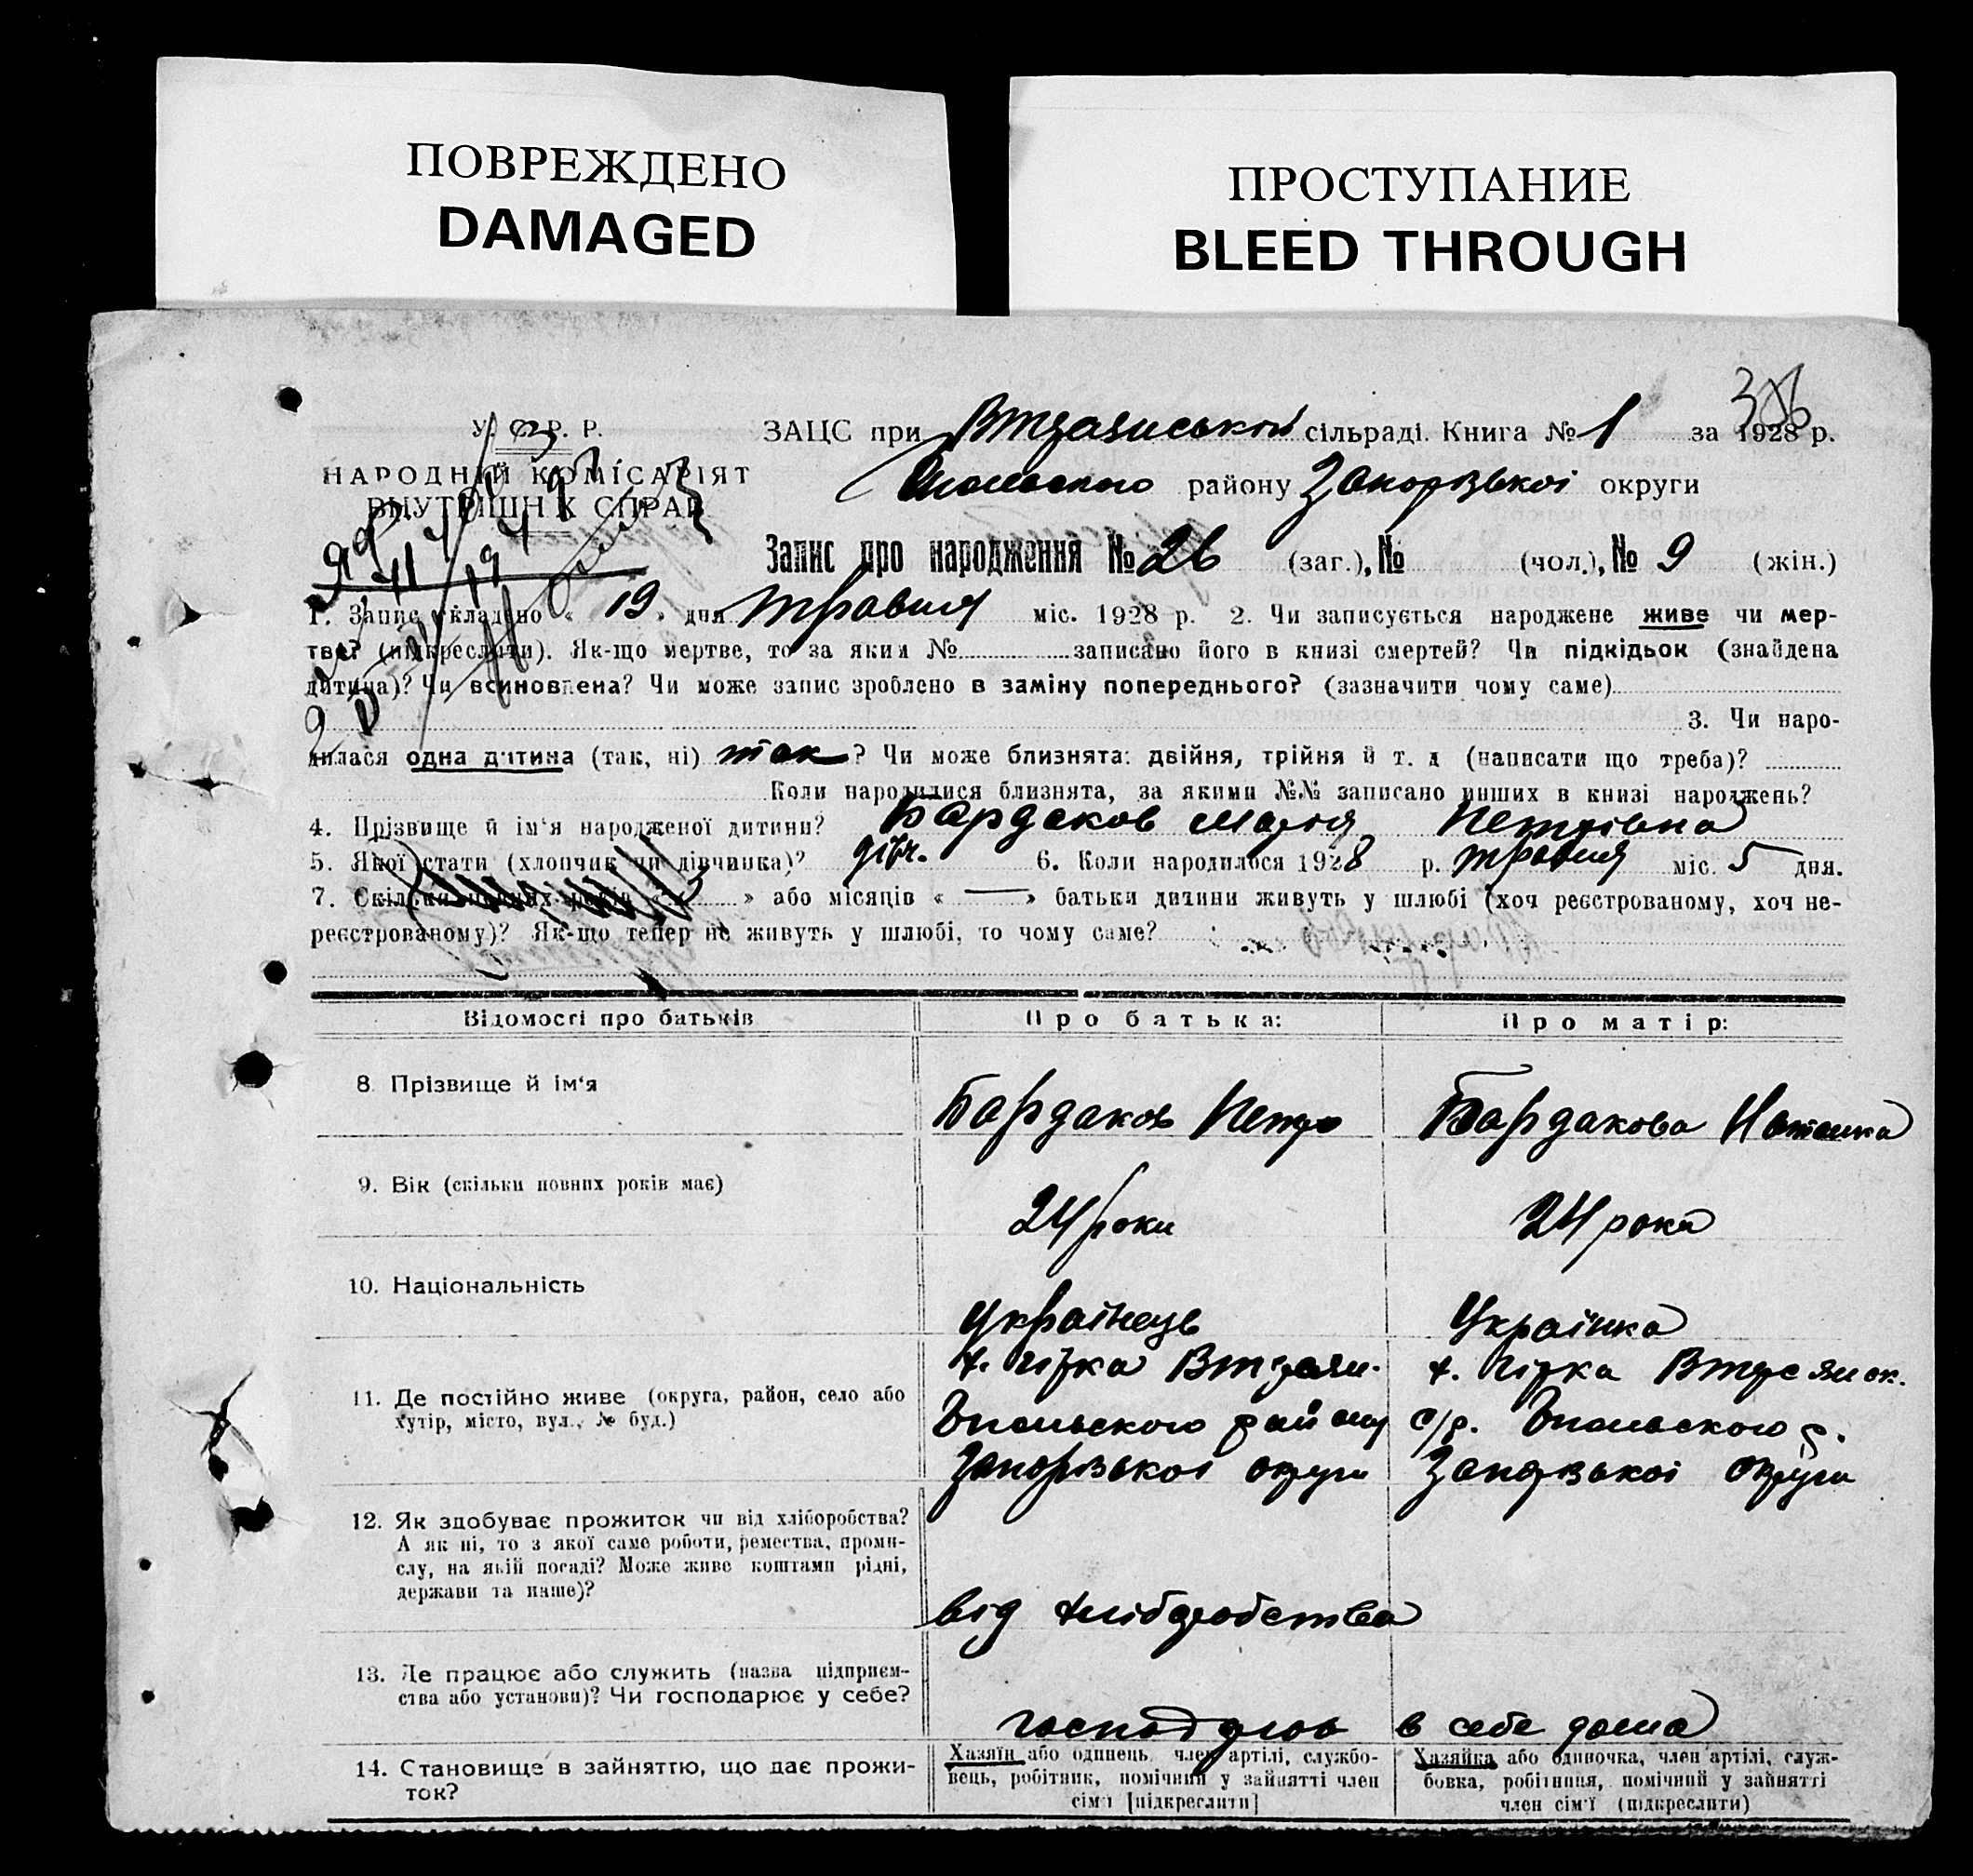 ПОВРЕЖДЕНО
DAMAGED
ПРОСТУПАНИЕ
BLEED THROUGH
У. С. Р. Р.
НАРОДНІЙ КОМІСАРІЯТ
ВНУТРІШНІХ СПРАВ
ЗАЦС при сільраді. Книга № 1 за 1928 р.
району Запорізької округи
Запис про народження № 26 (заг.), № (чол.), № 9 (жін.)
1. Запис складено « 19 » дня травня міс. 1928 р. 2. Чи записується народжене живе чи мер-
тве? (підкреслити). Як-що мертве, то за яким № записано його в книзі смертей? Чи підкідьок (знайдена
дитина)? Чи всиновлена? Чи може запис зроблено в заміну попереднього? (зазначити чому саме)
3. Чи наро-
дилася одна дитина (так, ні) так ? Чи може близнята: двійня, трійня й т. д (написати що треба)?
Коли народилися близнята, за якими №№ записано инших в книзі народжень?
4. Прізвище й ім'я народженої дитини? Бардаков Марія Петрівна
5. Якої стати (хлопчик чи дівчинка)? дівч. 6. Коли народилося 1928 р. травня міс. 5 дня.
7. Скільки повних років « » або місяців « — » батьки дитини живуть у шлюбі (хоч реєстрованому, хоч не-
реєстрованому)? Як-що тепер не живуть у шлюбі, то чому саме?
Відомості про батьків
Про батька:
Про матір:
8. Прізвище й ім'я
Бардаков Петро
Бардакова Наталка
9. Вік (скільки повних років має)
24 роки
24 рока
10. Національність
Українець
Українка
11. Де постійно живе (округа, район, село або
хутір, місто, вул., № буд.)
району
Запорізької округи
с/р. р.
Запорізької округи
12. Як здобуває прожиток чи від хліборобства?
А як ні, то з якої саме роботи, ремества, проми-
слу, на якій посаді? Може живе коштами рідні,
держави та инше)?
від хліборобства
13. Де працює або служить (назва підприєм-
ства або установи)? Чи господарює у себе?
в себе дома
14. Становище в зайняттю, що дає прожи-
ток?
Хазяїн або одинець, член артілі, службо-
вець, робітник, помічний у зайнятті член
сім'ї [підкреслити]
Хазяйка або одиночка, член артілі, служ-
бовка, робітниця, помічний у зайнятті
член сім'ї (підкреслити)